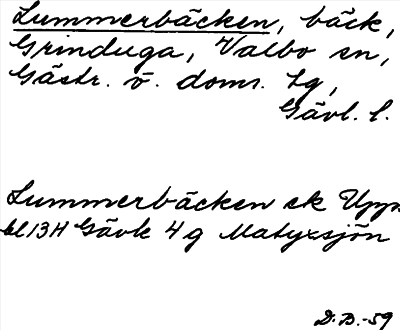 Lummerbäcken, bäck,
Grinduga, Valbo sn,
Gästr. ö. doms. tg,
Gävl. l.
Lummerbäcken ek Upp
bl 13H Gävle 4g Matyxsjön
D.B.-59